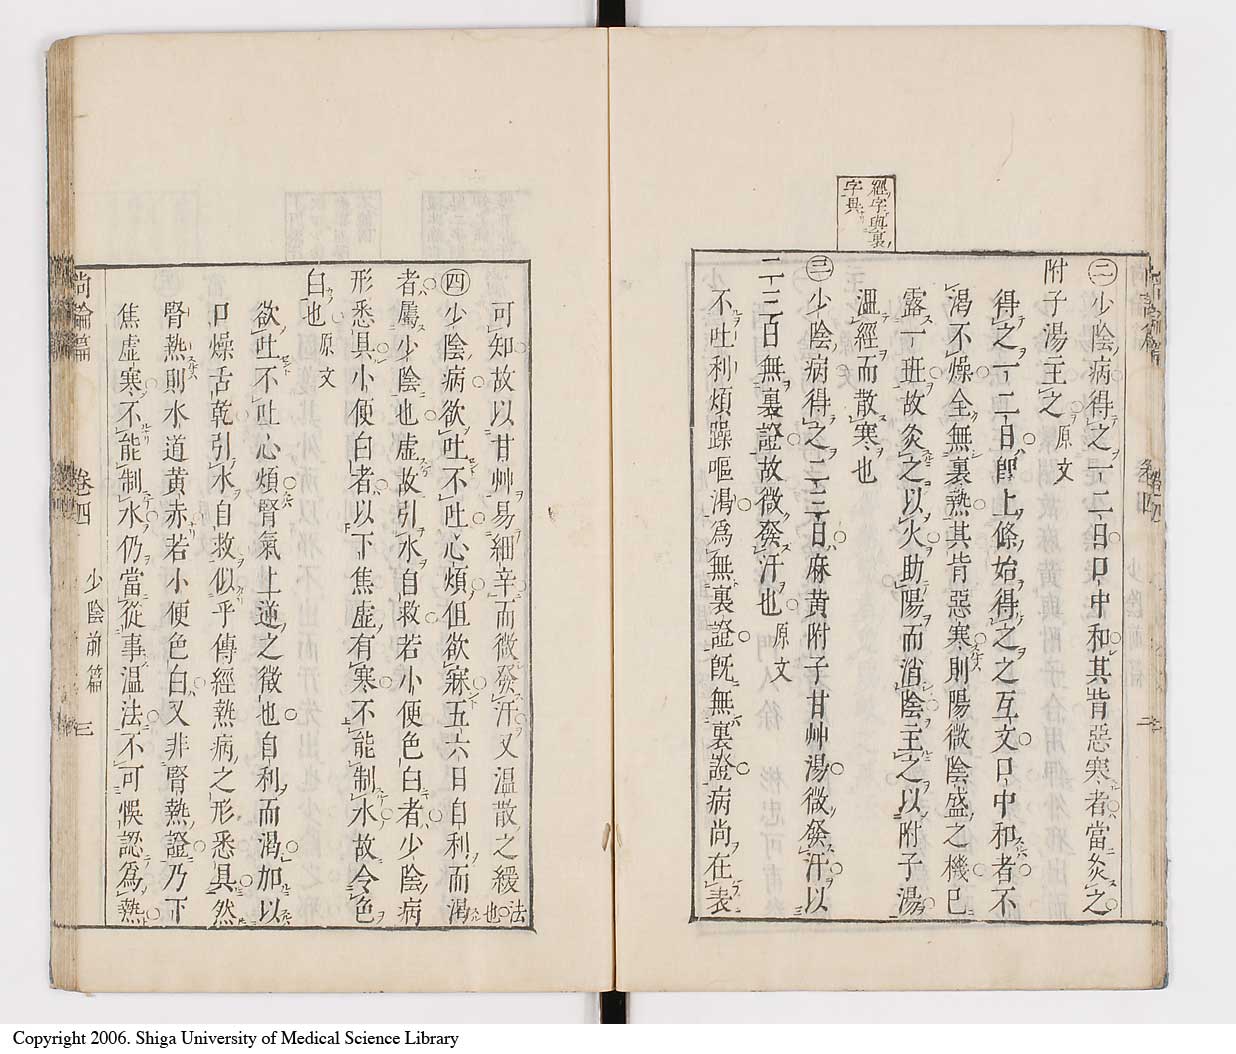 經字與裏
字具
㊁少陰病得之一二日口中和其背惡寒者當灸之
附子湯主之 原文
得之一二日即上條始得之之互文口中和者不
渴不燥全無裏熱其背惡寒則陽微陰盛之機已
露一班故灸之以火助陽而消陰主之以附子湯
溫經而散寒也
㊂少陰病得之二三日麻黃附子甘艸湯微發汗以
二三日無裏證故微發汗也 原文
不吐利煩躁嘔渴爲無裏證既無裏證病尚在表
可知故以甘艸易細辛而微發汗又温散之緩法也
㊃少陰病欲吐不吐心煩但欲寐五六日自利而渴
者屬少陰也虛故引水自救若小便色白者少陰病
形悉具小便白者以下焦虛有寒不能制水故令色
白也 原文
欲吐不吐心煩腎氣上逆之徴也自利而渴加以
口燥舌乾引水自救似乎傳經熱病之形悉具然
腎熱則水道黃赤若小便色白又非腎熱證乃下
焦虛寒不能制水仍當從事温法不可悞認爲熱
尚論篇 卷四 少陰前篇 三
Copyright 2006. Shiga University of Medical Science Library